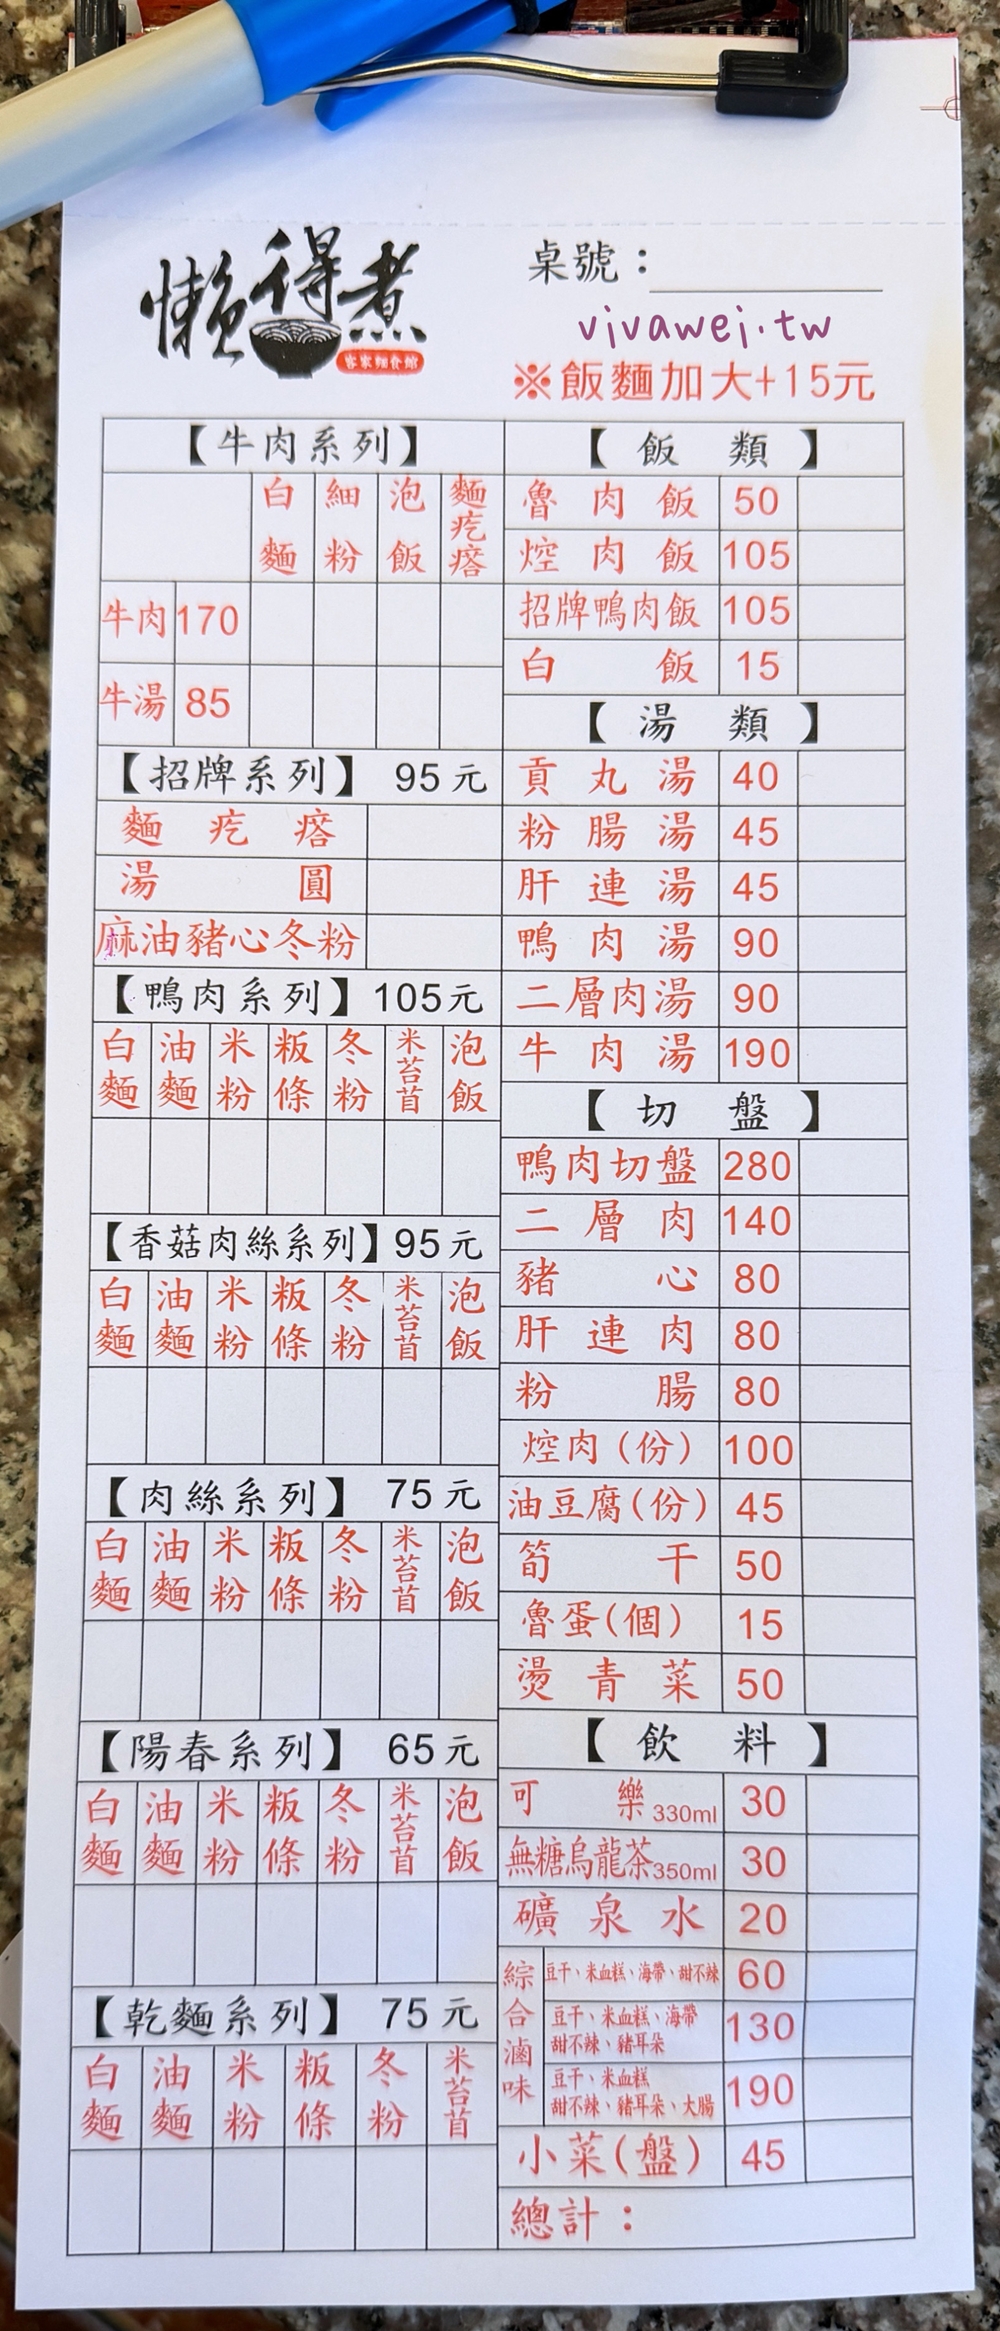 懶得煮
客家麵食館
桌號：
vivawei.tw
※飯麵加大+15元
【牛肉系列】
白麵 細粉 泡飯 麵疙瘩
牛肉 170
牛湯 85
【招牌系列】 95元
麵疙瘩
湯圓
麻油豬心冬粉
【鴨肉系列】105元
白麵 油麵 米粉 粄條 冬粉 米苔苜 泡飯
【香菇肉絲系列】95元
白麵 油麵 米粉 粄條 冬粉 米苔苜 泡飯
【肉絲系列】 75元
白麵 油麵 米粉 粄條 冬粉 米苔苜 泡飯
【陽春系列】 65元
白麵 油麵 米粉 粄條 冬粉 米苔苜 泡飯
【乾麵系列】 75元
白麵 油麵 米粉 粄條 冬粉 米苔苜
【飯類】
魯肉飯 50
焢肉飯 105
招牌鴨肉飯 105
白飯 15
【湯類】
貢丸湯 40
粉腸湯 45
肝連湯 45
鴨肉湯 90
二層肉湯 90
牛肉湯 190
【切盤】
鴨肉切盤 280
二層肉 140
豬心 80
肝連肉 80
粉腸 80
焢肉(份) 100
油豆腐(份) 45
筍干 50
魯蛋(個) 15
燙青菜 50
【飲料】
可樂330ml 30
無糖烏龍茶350ml 30
礦泉水 20
綜合滷味
豆干、米血糕、海帶、甜不辣 60
豆干、米血糕、海帶
甜不辣、豬耳朵 130
豆干、米血糕
甜不辣、豬耳朵、大腸 190
小菜(盤) 45
總計：